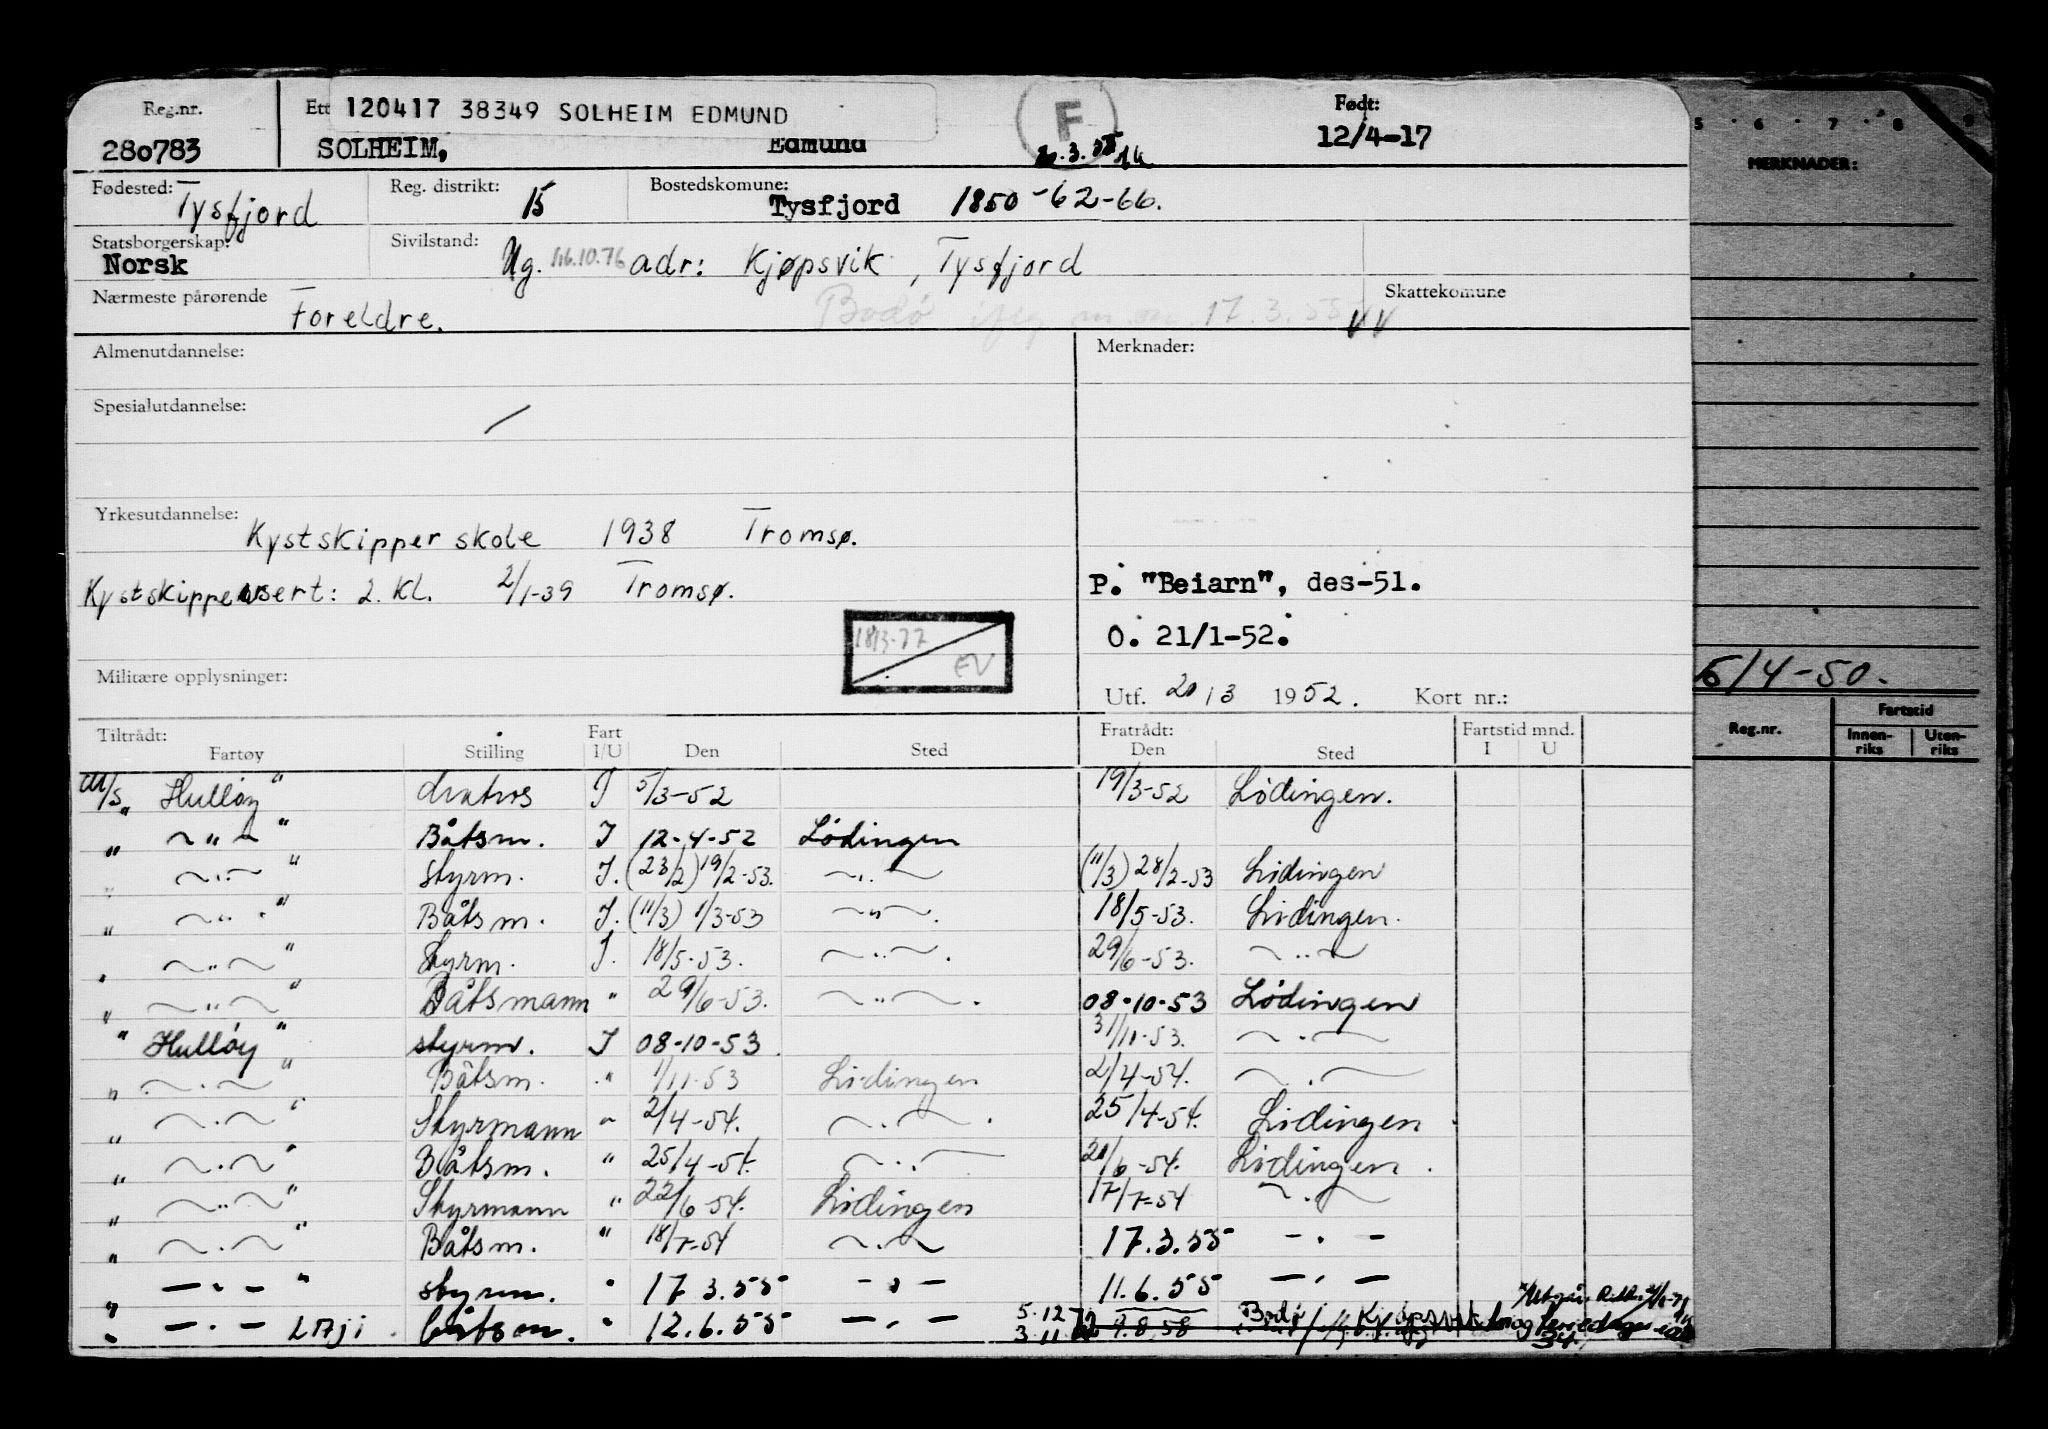 Reg.nr. Ett 120417 38349 SOLHEIM EDMUND F Født:
280783 SOLHEIM, Edmund 12/4-17
Fødested: Tysfjord Reg. distrikt: 15 Bostedskomune: Tysfjord 1850-62-66.
Statsborgerskap: Norsk Sivilstand: Ug. 16.10.76 adr: Kjøpsvik, Tysfjord
Nærmeste pårørende Foreldre. Bodö 17.3.55 Skattekomune
Almenutdannelse: Merknader:
Spesialutdannelse:
Yrkesutdannelse: Kystskipperskole 1938 Tromsø.
Kystskippersert: 2. kl. 2/1-39 Tromsø. P. "Beiarn", des-51.
18/3-77 EV O. 21/1-52.
Militære opplysninger: Utf. 20/3 1952. Kort nr.:
Tiltrådt: Fart Fratrådt: Fartstid mnd.
Fartøy Stilling I/U Den Sted Den Sted I U
M/S "Hulløy" Matros I 5/3-52 19/3-52 Lödingen.
" ~"~ " Båtsm. I 12-4-52 Lödingen
~"~ " Styrm. I. (23/2) 19/2-53. ~"~ (11/3) 28/2-53 Lödingen
" ~"~ " Båtsm. I. (11/3) 1/3-53 ~"~. 18/5-53. Lödingen.
" ~"~ " Styrm. I. 18/5-53. ~"~. 29/6-53. ~"~
" ~"~ " Båtsmann " 29/6-53. ~"~. 08-10-53 Lödingen
" Hulløy " styrm. I 08-10-53. 31/11-53. ~"~
" ~"~ " Båtsm. " 1/11-53 Lödingen 2/4-54. ~"~
" ~"~ " Styrmann " 2/4-54. ~"~. 25/4-54. Lödingen
" ~"~ " Båtsm. " 25/4-54. ~"~ 20/6-54. Lödingen.
" ~"~ " Styrmann " 22/6-54. Lödingen 17/7-54 ~"~
" ~"~ " Båtsm. " 18/7-54 ~"~ 17.3.55 -"-
" -"- " styrm. " 17.3.55 -"- 11.6.55 -"-
" -"- LMji. båtsm. " 12.6.55 -"- 5.12.72 Bodö Kjøpsvik
3.11. 9.8.58
5 6 7 8 9
MERKNADER:
5/4-50.
Reg.nr. Fartstid
Innen-riks Uten-riks